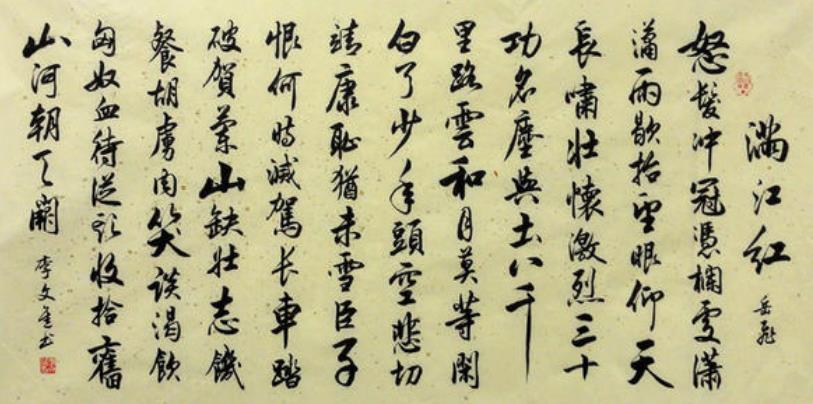 滿江紅 岳飛
怒髮冲冠憑欄處瀟
瀟雨歇抬望眼仰天
長嘯壯懷激烈三十
功名塵與土八千
里路雲和月莫等閑
白了少年頭空悲切
靖康恥猶未雪臣子
恨何時滅駕长車踏
破賀蘭山缺壯志饑
餐胡虜肉笑談渴飲
匈奴血待從頭收拾舊
山河朝天闕 李文